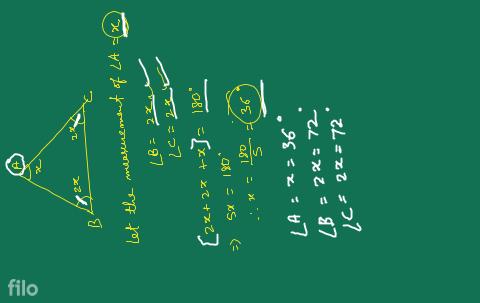 A
x
2x
2x
B
C
Let the measurement of ∠A = x
∠B = 2x
∠C = 2x
[2x + 2x + x] = 180°
⇒ 5x = 180°
∴ x = 180/5 = 36°
∠A = x = 36°
∠B = 2x = 72°
∠C = 2x = 72°
filo